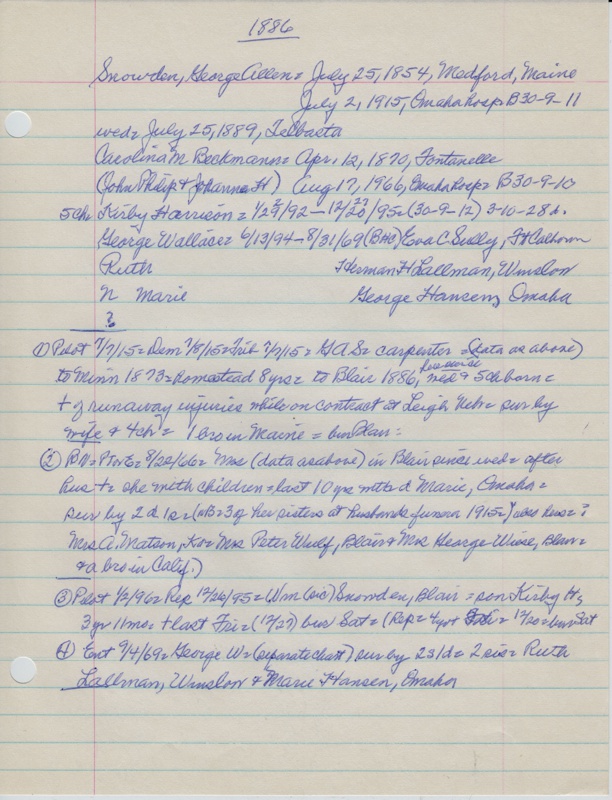 1886
Snowden, George Allen = July 25, 1854, Medford, Maine
July 2, 1915, Omaha Hosp = B30-9-11
wed = July 25, 1889, Telbasta
Carolina M. Beckmann = Apr. 12, 1870, Fontanelle
(John Philip & Johanna H) Aug 17, 1966, Omaha Hosp = B30-9-10
5 ch. Kirby Harrison = 1/29/92 — 12/20/95 = (30-9-12) 3-10-28 d.
George Wallace = 6/13/94 - 8/31/69 (BHC) Eva C. Sully, Ft Calhoun
Ruth Herman H Lallman, Winslow
N Marie George Hansen, Omaha
?
① Pilot 7/7/15 = Dem 7/8/15 = Trib 7/7/15 = GAS = carpenter = (data as above)
to Minn 1873 = homestead 8 yrs = to Blair 1886, wed & 5 ch born =
+ of runaway injuries while on contract at Leigh Neb = sur by
wife & 4 ch = 1 bro in Maine = bur Blair =
② = 8/22/66 = Mrs (data as above) in Blair since wed = after
hus + = she with children = last 10 yrs with d Marie, Omaha =
sur by 2 d 1 s = (NB = 3 of her sisters at husbands funeral 1915 =
Mrs A. Matson, = Mrs Peter Wulf, Blair & Mrs George Wiese, Blair =
& a bro in Calif.)
③ Pilot 1/2/96 = Rep 12/26/95 = Wm (sic) Snowden, Blair = son Kirby H,
3 yr 11 mo = + last Fri = (12/27) bur Sat = (Rep = 4 yr = 12/20 = bur Sat
④ Ent 9/4/69 = George W = (separate chart) sur by 2 s 1 d = 2 sis = Ruth
Lallman, Winslow & Marie Hansen, Omaha